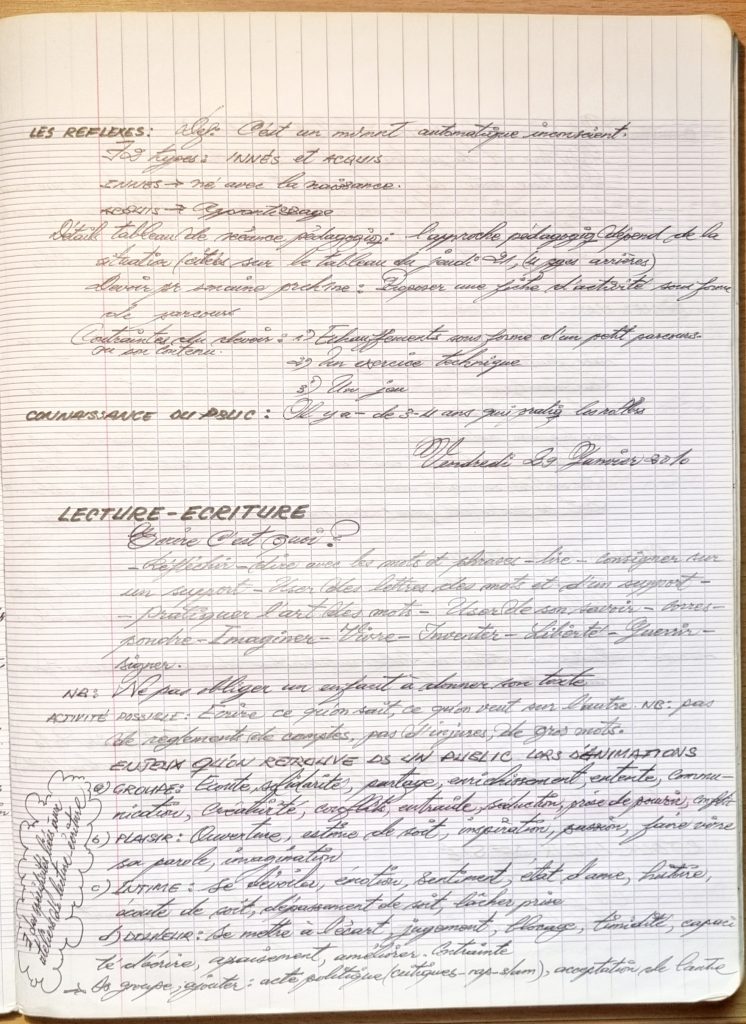 LES REFLEXES: Def: C'est un mvmnt automatique inconscient.
Il y a 2 types: INNÉS et ACQUIS
INNES → né avec la naissance.
ACQUIS → Apprentissage
Détail tableau de séance pédagogiq: l'approche pédagogiq dépend de la
situation (citées sur le tableau du jeudi 21, 4 pges arrières)
Devoir pr smaine prchine: Proposer une fiche d'activité sous forme
de parcours
Contraintes du devoir: 1°) Echauffements sous forme d'un petit parcours.
ou son contenu.
2°) Un exercice technique
3°) Un jeu
CONNAISSANCE DU PBLIC: Il y a - de 3-4 ans qui pratiq les rollers
Vendredi 29 Janvier 2010
LECTURE-ECRITURE
Ecrire C'est quoi?
- Réfléchir - dire avec les mots et phrases - lire - consigner sur
un support - User des lettres des mots et d'un support -
- pratiquer l'art des mots - User de son savoir - corres-
pondre - Imaginer - Vivre - Inventer - Liberté - Guerrir -
signer.
NB: Ne pas obliger un enfant à donner son texte
ACTIVITÉ POSSIBLE: Écrire ce qu'on sait, ce qu'on veut sur l'autre. NB: pas
de reglements de comptes, pas d'injures, de gros mots.
ENJEUX QU'ON RETROUVE DS UN PUBLIC LORS D'ANIMATIONS
a) GROUPE: Ecoute, solidarité, partage, enrichissement, entente, commu-
nication, créativité, conflits, entraide, séduction, prise de pouvoir,
b) PLAISIR: Ouverture, estime de soit, inspiration, passion, faire vivre
sa parole, imagination
c) INTIME: se dévoiler, émotion, sentiment, état d'ame, histoire,
écoute de soit, dépassement de soit, lâcher prise
d) DOULEUR: Se mettre à l'écart, jugement, blocage, timidité, capaci
té d'écrire, apaisement, améliorer. Contrainte
→ Ds groupe, ajouter: acte politique (critiques-rap-slam), acceptation de l'autre
liés aux
ateliers de lecture écriture